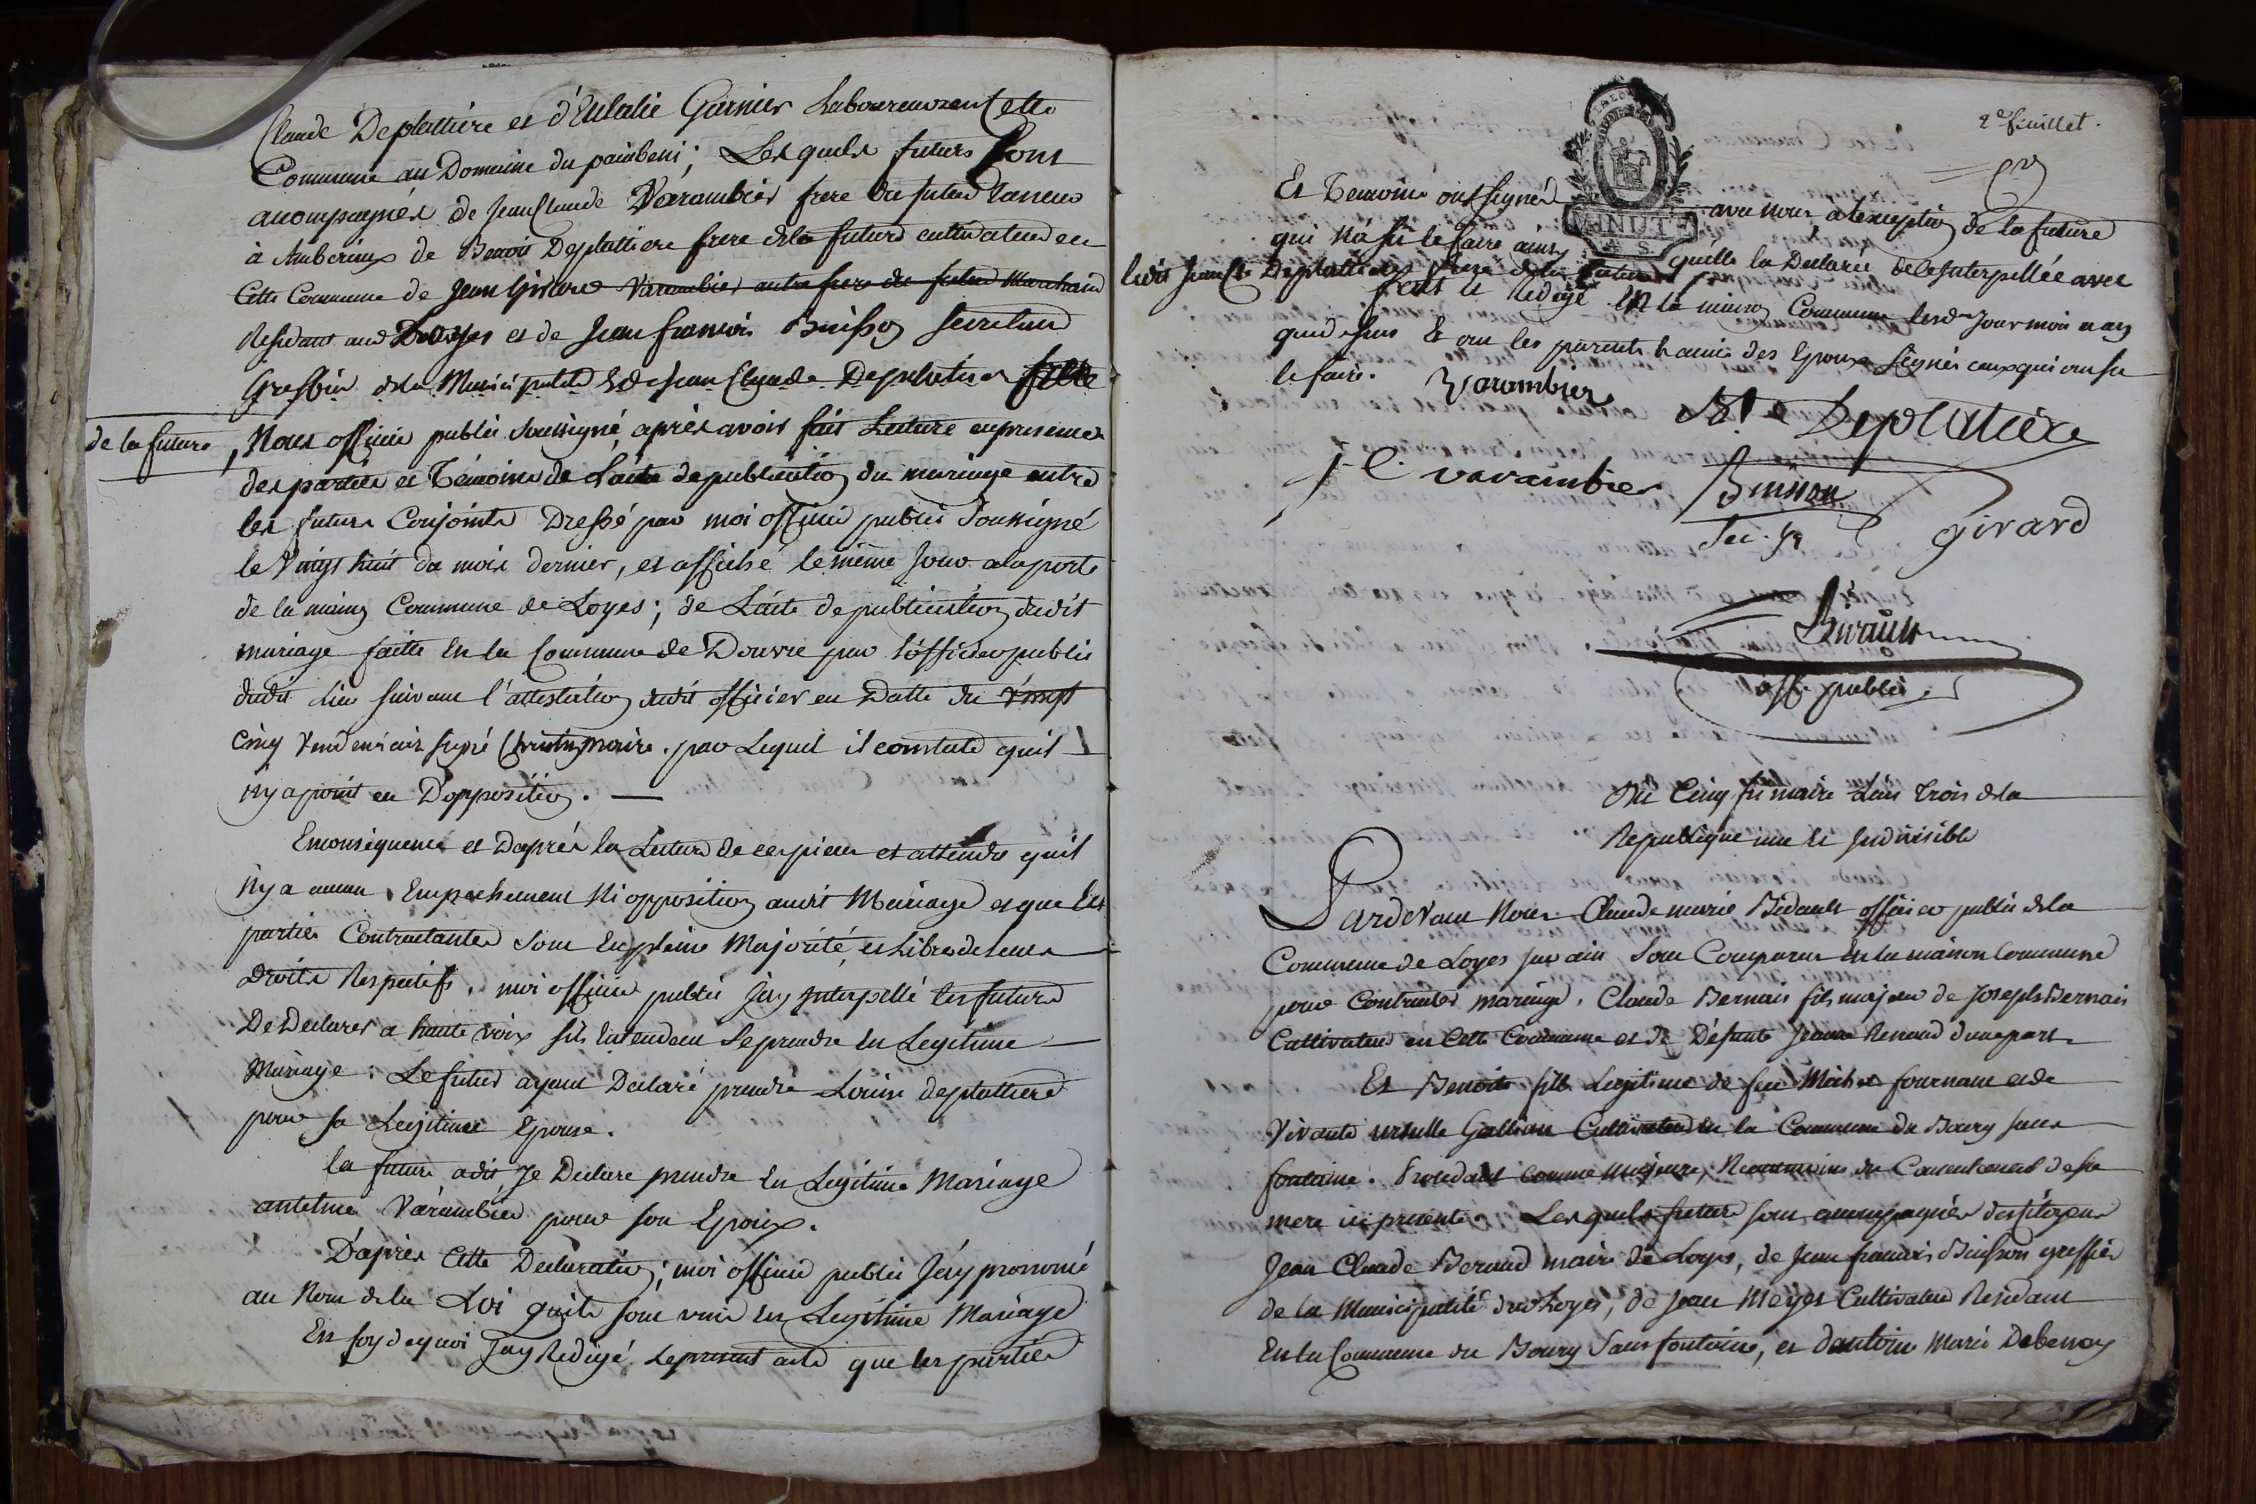 Claude Deplattiere et d'Eulalie Garnier Laboureur en Cette
Commune au Domaine du ; Lesquels futurs Sont
acompagnés de Jean Claude Varambier frere du futur
à Amberieux de Benoit Deplattiere frere dela future cultivateur en
Cette Commune de Jean Varambier autre frere du futur Marchand
Residant aud et de Jean francois Buisson secretaire
Greffier dela Municipalité & de Jean Claude Deplatiere frere
de la future, Nous officier public soussigné, après avoir fait Lecture en presence
des parties et Témoins de L'acte de publication du mariage entre
les futurs Conjoints Dressé par moi officier public Soussigné
le Vingt huit du mois dernier, et affiché le même Jour a la porte
de la maison Commune de Loyes; de L'acte de publication dudit
mariage faitte en la Commune de Douvre par l'officier public
dudit Lieu suivant l'attestation dudit officier en Datte du vingt
Cinq Vendemiair signé maire. par Lequel il constate quil
n'y a point eu D'opposition.
En consequence et D'aprés la Lecture de ces pieces et attendu quil
n'y a aucun Empechement Ni opposition audit Mariage et que Les
parties Contractantes sont En pleine Majorité, et Libres de leurs
droits Respectifs, moi officier public J'ay interpellé les futurs
De Declarer a haute voix s'ils Entendent Se prendre En Legitime
Mariage: Le futur ayant Declaré prendre Louise deplattiere
pour sa Legitime Epouse.
la future a dit, Je Declare prendre En Legitime Mariage
antelme Varambier pour son Epoux.
D'aprés Cette Declaration; moi officier public J'ay prononcé
au Nom de la Loi quils sont unis En Legitime Mariage
En foy de quoi J'ay Redigé le present acte que les parties
2e feuillet.
MINUTE
Et Temoins ont signé avec nous, a l'exception de la future
qui n'a su le faire ainsi quelle la Declaré de ce Interpellée avec
ledit Jean Cde Deplattiere frere dela future
fait et Redigé En la maison Commune lesd. Jour mois et an
que dessus & ont les parents & amis des Epoux Signés ceux qui ont su
le faire.
Varambier
Bt Deplatiere
J C varambier
Buisson
Sec. gr
girard
Bidault
off. public
Du Cinq frimaire L'an Trois dela
Republique une et Indivisible
Pardevant Nous Claude marie Bidault officier public dela
Commune de Loyes sur ain, Sont Comparus En la maison Commune
pour Contracter mariage, Claude Bernais fils majeur de Joseph Bernais
Cultivateur en Cette Commune et de Défunte Jeanne Renaud dune part
Et Benoite fille Legitime de feu Michel fournant et de
Vivante ursulle Gallian Cultivateur En la Commune du Bourg sans
fontaine. Procedant comme majeure, Neanmoins du Consentement de sa
mere ici presente. Lesquels futurs sont acompagnés des Citoyens
Jean Claude Beraud maire de Loyes, de Jean francois Buisson greffier
de la Municipalité dud Loyes, de Jean Meyer Cultivateur Residant
En la Commune du Bourg Sans fontaine, et d'antoine Marie Debenay